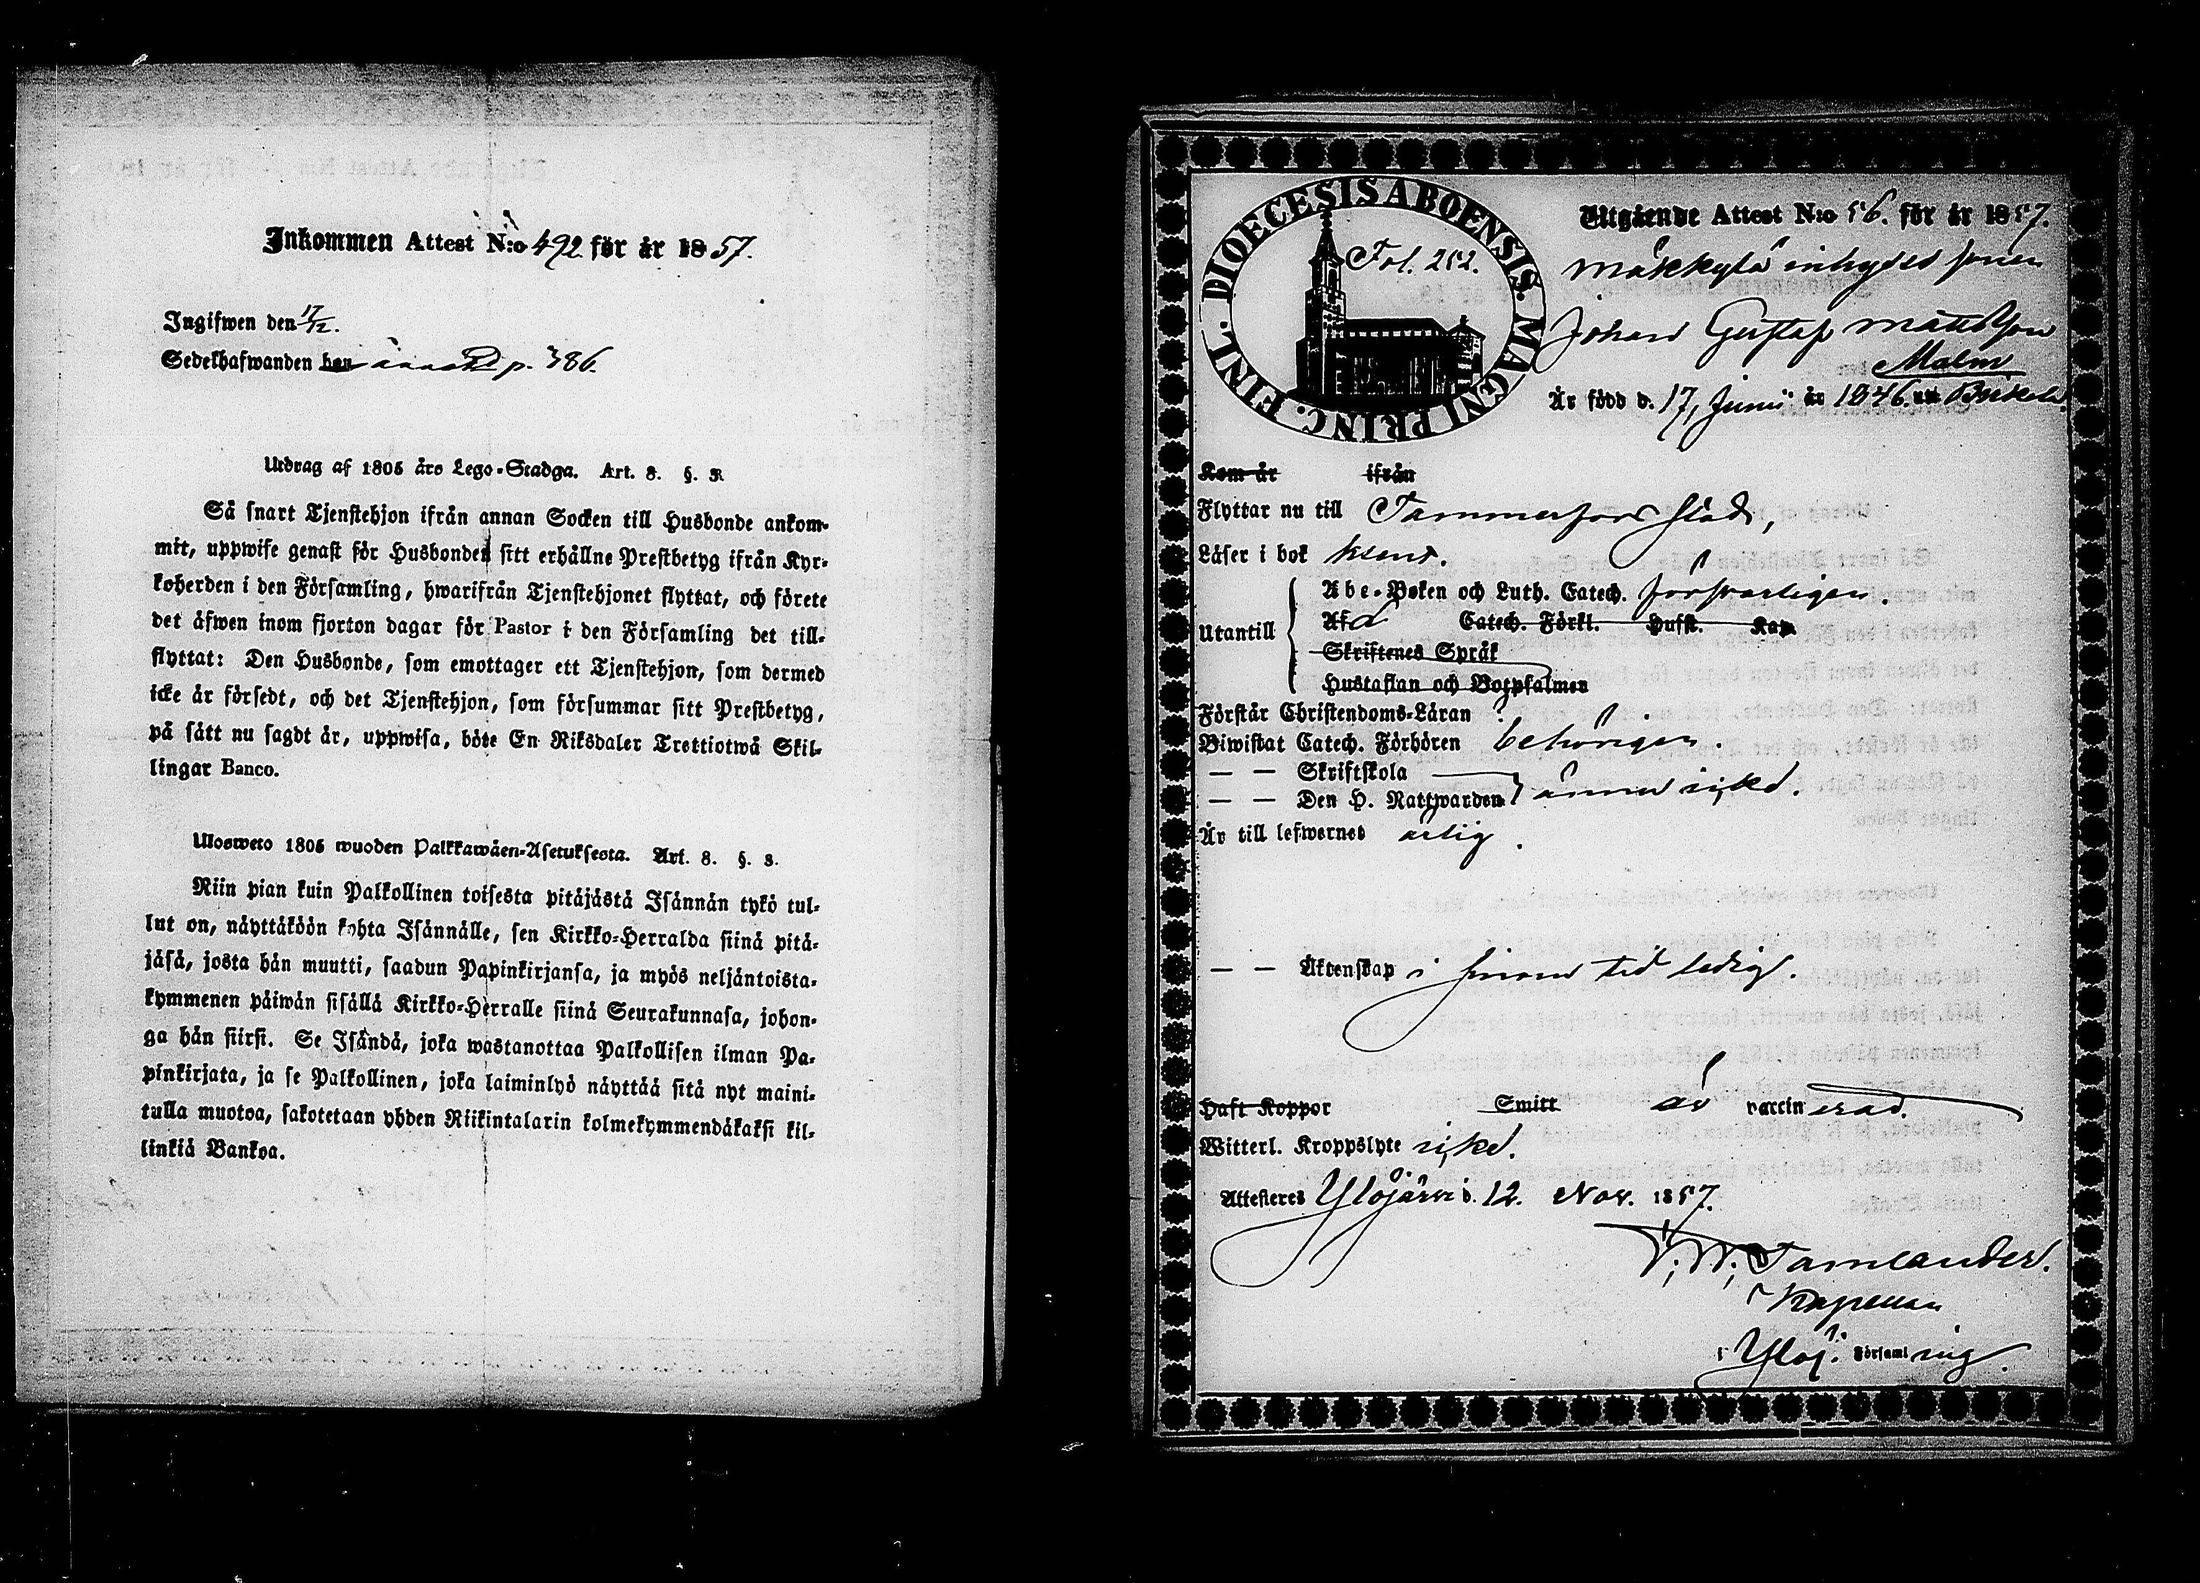 Inkommen Attest N:o 492 för år 1857.
Ingifwen den 17/12.
Sedelhafwanden har p. 386.
Utdrag af 1805 års Lego-Stadga. Art. 8. §. 3.
Så snart Tjenstehjon ifrån annan Socken till Husbonde ankom-
mit, uppwise genast för Husbonden sitt erhållne Prestbetyg ifrån Kyr-
koherden i den Församling, hwarifrån Tjenstehjonet flyttat, och förete
det äfwen inom fjorton dagar för Pastor i den Församling det till-
flyttat: Den Husbonde, som emottager ett Tjenstehjon, som dermed
icke är försedt, och det Tjenstehjon, som försummar sitt Prestbetyg,
på sätt nu sagdt är, uppwisa, böte En Riksdaler Trettiotwå Skil-
lingar Banco.
Ulosweto 1805 wuoden Palkkawäen-Asetuksesta. Art. 8. §. 3.
Niin pian kuin Palkollinen toisesta pitäjästä Isännän tykö tul-
lut on, näyttäköön kohta Isännälle, sen Kirkko-Herralda siinä pitä-
jäsä, josta hän muutti, saadun Papinkirjansa, ja myös neljäntoista-
kymmenen päiwän sisällä Kirkko-Herralle siinä Seurakunnasa, johon-
ga hän siirsi. Se Isändä, joka wastanottaa Palkollisen ilman Pa-
pinkirjata, ja se Palkollinen, joka laiminlyö näyttää sitä nyt maini-
tulla muotoa, sakotetaan yhden Riikintalarin kolmekymmendäkaksi kil-
linkiä Bankoa.
DIOECESIS ABOENSIS. MAGNI PRINC. FINL.
Fol. 252.
Utgående Attest N:o 56. för år 1857.
Mäkkylä inhyses sonen
Johan Gustaf Mattsson
Malm
Är född d. 17, Junii år 1846. i Birkala.
Kom år ifrån
Flyttar nu till Tammerfors stad,
Läser i bok
Utantill
Abc-Boken och Luth. Catech. försvarligen.
Af Catech. Förkl. Hufst. Kap.
Skriftenes Språk
Hustaflan och Botpsalmen
Förstår Christendoms-Läran
Biwistat Catech. Förhören behörigen.
— — Skriftskola
— — Den H. Nattwarden ännu icke.
Är till lefwernet ärlig.
— — Äktenskap i sinom tid ledig.
Haft Koppor Smitt är vaccinerad.
Witterl. Kroppslyte icke.
Attesteres Ylöjärvi d. 12 Nov. 1857.
V. W. Tamlander.
Kapellan
i Ylöj. Församling.